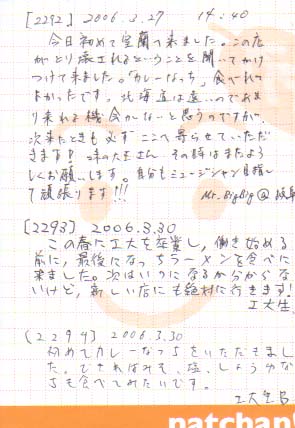 [2292] 2006.3.27 14:40
今日初めて室蘭へ来ました。この店
がとり壊されるということを聞いてかけ
つけて来ました。「カレーなっち」食べれて
よかったです。北海道は遠いのであま
り来れる機会がないと思うのですが、
次来たときも必ずここへ寄らせていただ
きます!! 味の大王さん、その時はまたよろ
しくお願いします。自分もミュージシャン目指し
て頑張ります!!!
Mr.BigBig@岐阜
[2293] 2006.3.30
この春に工大を卒業し、働き始める
前に、最後になっちラーメンを食べに
来ました。次はいつになるか分からな
いけど、新しい店にも絶対に行きます!
工大生
(2294) 2006.3.30
初めてカレーなっちをいただきまし
た。できればみそ、塩、しょうゆな
ども食べてみたいです。
工大生
natchan